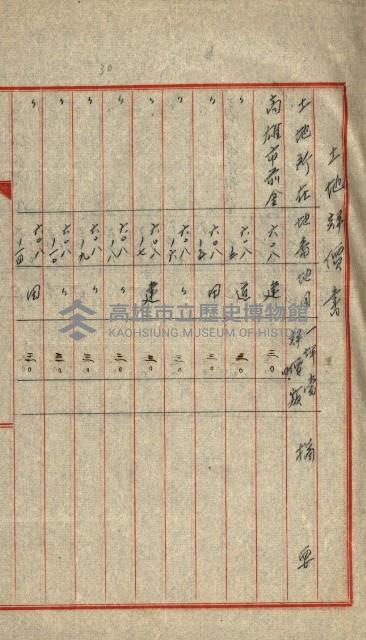 30
土地評價書
土地所在 地番 地目 一坪當評價額 摘要
高雄市前金 六〇八 建 三〇
〃 六〇八 道 三〇
〃 六〇八 田 三〇
〃 六〇八ノ一六 〃 三〇
〃 六〇八ノ一七 建 三〇
〃 六〇八ノ一八 〃 三〇
〃 六〇八ノ一九 〃 三〇
〃 六〇八 〃 三〇
〃 六〇八 田 三〇
高雄市立歷史博物館
KAOHSIUNG MUSEUM OF HISTORY